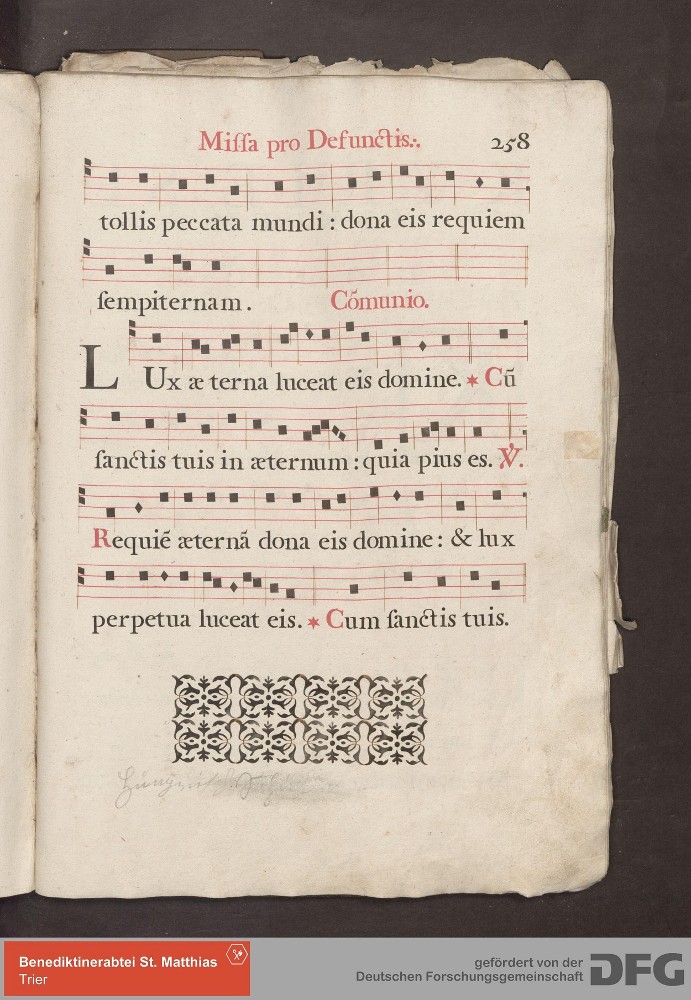 Miſſa pro Defunctis.·. 258
tollis peccata mundi : dona eis requiem
ſempiternam. Cõmunio.
LUx æ terna luceat eis domine. * Cũ
ſanctis tuis in æternum : quia pius es. ℣.
Requiẽ æternã dona eis domine : & lux
perpetua luceat eis. * Cum ſanctis tuis.
Benediktinerabtei St. Matthias
Trier
gefördert von der
Deutschen Forschungsgemeinschaft DFG